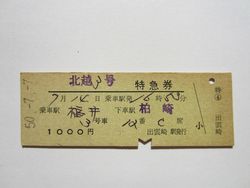 北越3号 特急券
7月14日 乗車駅発
乗車駅 福井 下車駅 柏崎
3号車 番C席
1000円 出雲崎駅発行
小
50.-7.-7
特④ 出雲崎